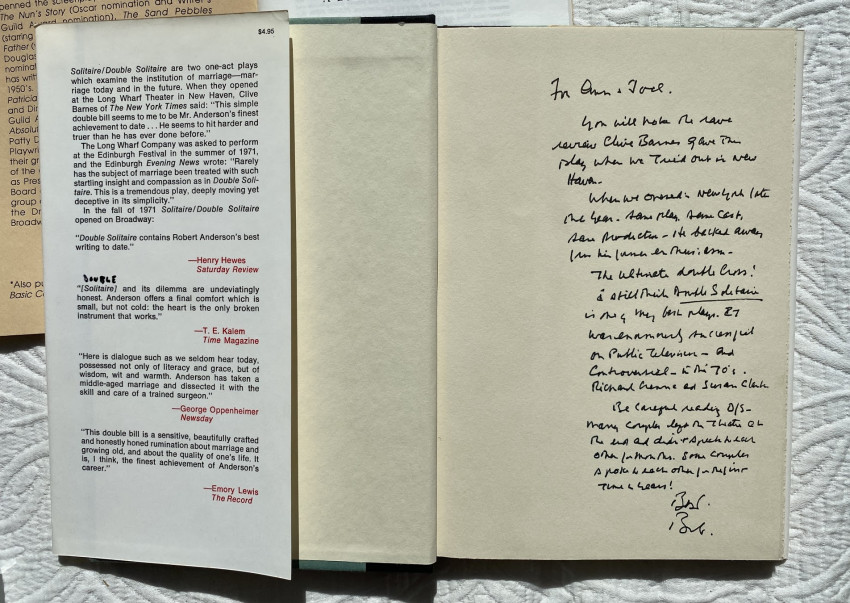 penned the screenplay
The Nun's Story (Oscar nomination and Writer's
Guild nomination), The Sand Pebbles
(starring
Father (
Douglas
nominat
has writ
1950's.
Patricia
and Dir
Guild A
Absolut
Patty D
Playwri
their gr
of the
as Pres
Board
group
the Dr
Broadw
*Also pu
Basic Co
$4.95
Solitaire/Double Solitaire are two one-act plays
which examine the institution of marriage—mar-
riage today and in the future. When they opened
at the Long Wharf Theater in New Haven, Clive
Barnes of The New York Times said: "This simple
double bill seems to me to be Mr. Anderson's finest
achievement to date . . . He seems to hit harder and
truer than he has ever done before."
The Long Wharf Company was asked to perform
at the Edinburgh Festival in the summer of 1971,
and the Edinburgh Evening News wrote: "Rarely
has the subject of marriage been treated with such
startling insight and compassion as in Double Soli-
taire. This is a tremendous play, deeply moving yet
deceptive in its simplicity."
In the fall of 1971 Solitaire/Double Solitaire
opened on Broadway:
"Double Solitaire contains Robert Anderson's best
writing to date."
—Henry Hewes
Saturday Review
DOUBLE
"[Solitaire] and its dilemma are undeviatingly
honest. Anderson offers a final comfort which is
small, but not cold: the heart is the only broken
instrument that works."
—T. E. Kalem
Time Magazine
"Here is dialogue such as we seldom hear today,
possessed not only of literacy and grace, but of
wisdom, wit and warmth. Anderson has taken a
middle-aged marriage and dissected it with the
skill and care of a trained surgeon."
—George Oppenheimer
Newsday
"This double bill is a sensitive, beautifully crafted
and honestly honed rumination about marriage and
growing old, and about the quality of one's life. It
is, I think, the finest achievement of Anderson's
career."
—Emory Lewis
The Record
For Ann + Joel.
You will note the rave
review Clive Barnes gave the
play when we tried out in New
Haven.
When we opened in New York late
the year. Same play. Same cast,
same production - he backed away
from his former enthusiasm -
The ultimate double cross!
I still think Double Solitaire
is one of my best plays. It
was enormously successful
on Public Television - and
Controversial - in the 70's.
Richard Crenna and Susan Clark
Be careful reading D/S -
many couples left the theatre at
the end and didn't speak to each
other for months. Some couples
spoke to each other for the first
time in years!
Best.
Bob.